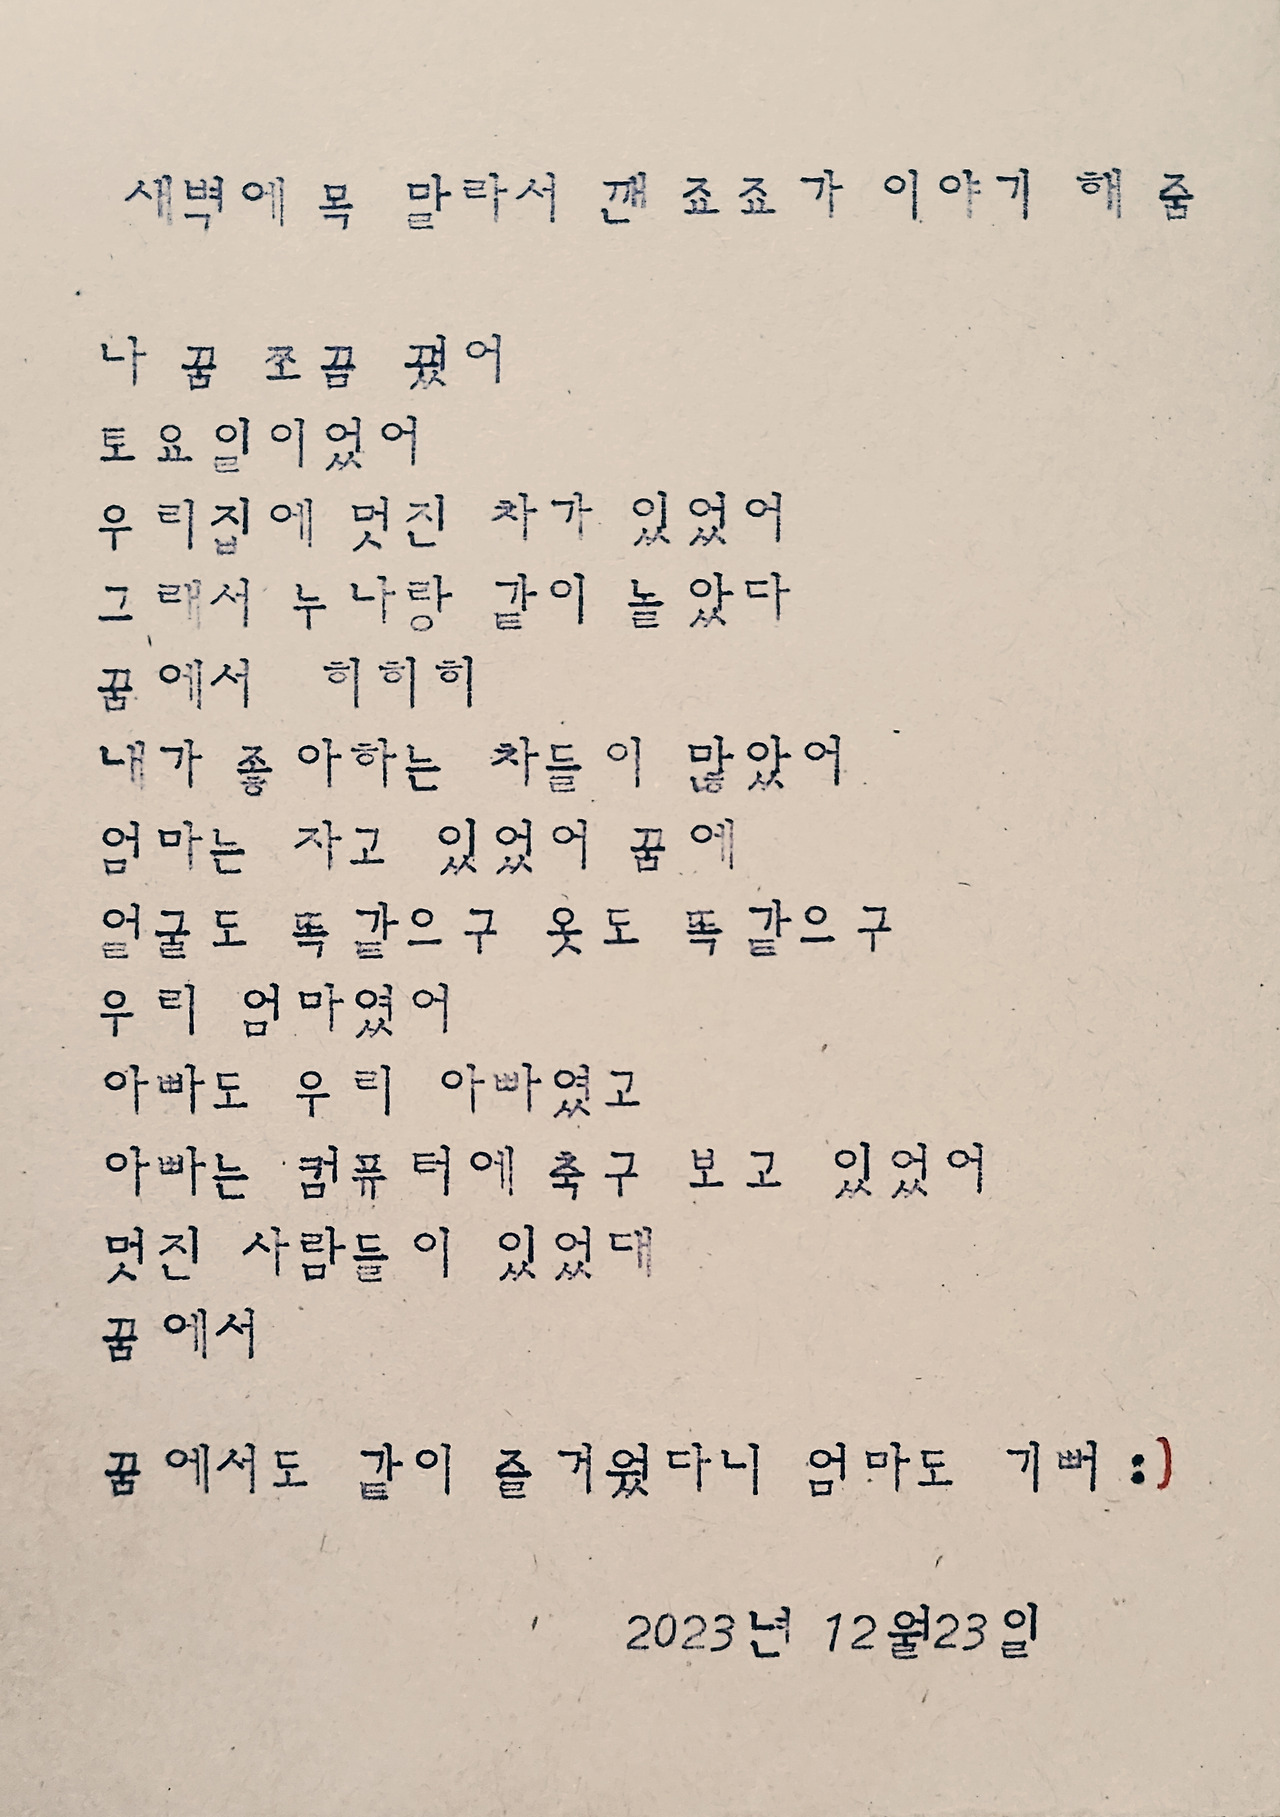 새벽에 목 말라서 깬 죠죠가 이야기 해 줌
나 꿈 쪼끔 꿨어
토요일이었어
우리집에 멋진 차가 있었어
그래서 누나랑 같이 놀았다
꿈에서 히히히
내가 좋아하는 차들이 많았어
엄마는 자고 있었어 꿈에
얼굴도 똑같으구 옷도 똑같으구
우리 엄마였어
아빠도 우리 아빠였고
아빠는 컴퓨터에 축구 보고 있었어
멋진 사람들이 있었대
꿈에서
꿈에서도 같이 즐거웠다니 엄마도 기뻐 :)
2023년 12월23일